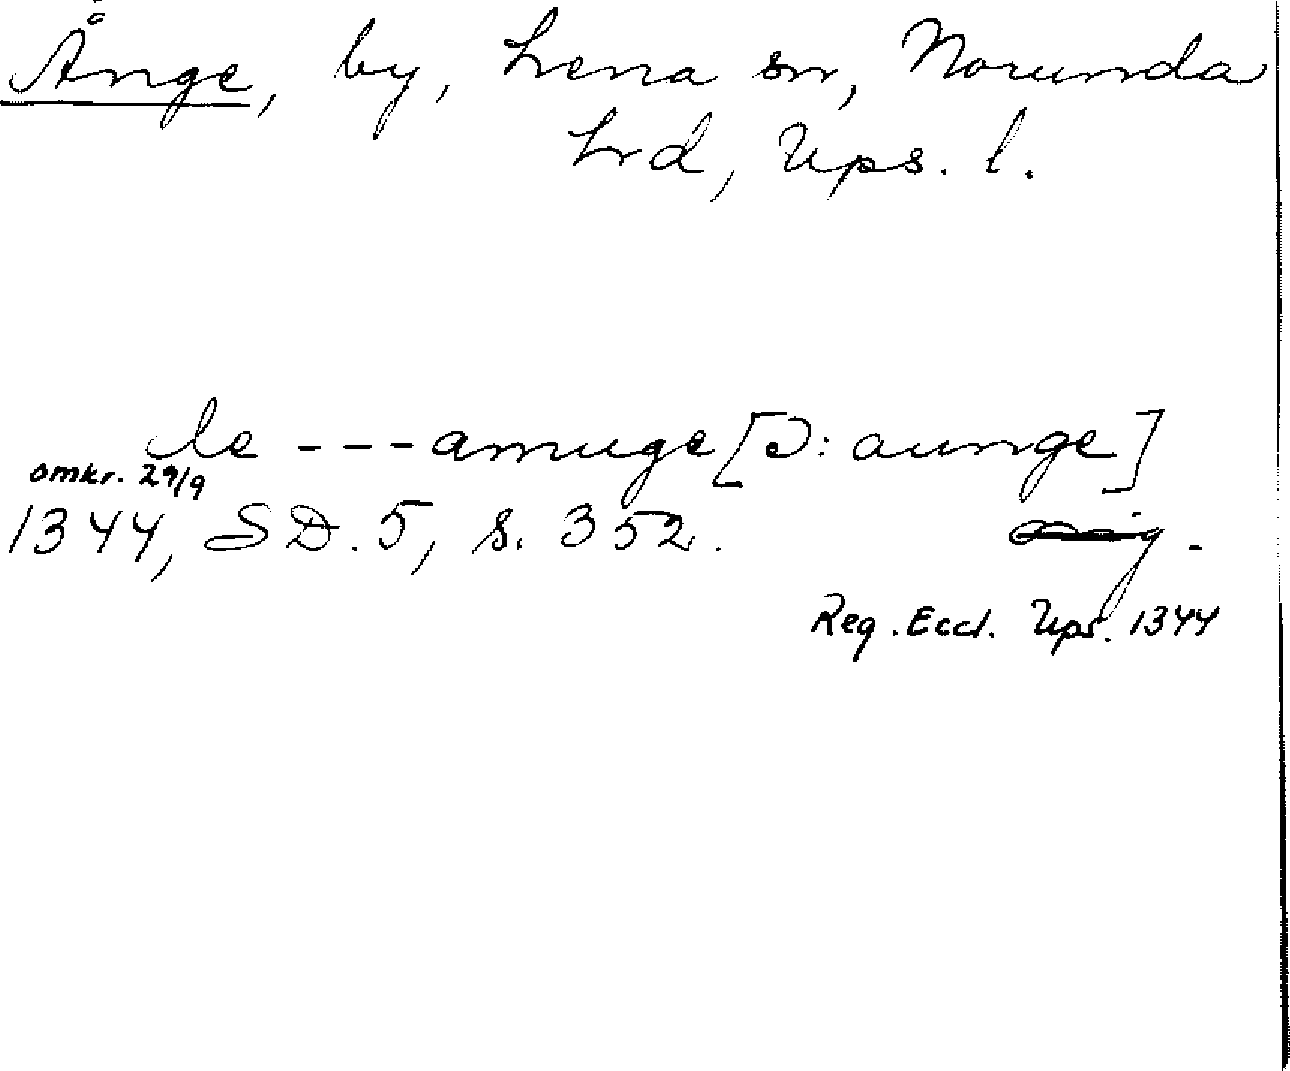 Ånge, by, Lena sn, Norunda
hrd, Ups. l.
de ---amuge [ɔ: aunge]
omkr. 29/9
1344, SD. 5, s. 352.
Reg. Eccl. Ups. 1344